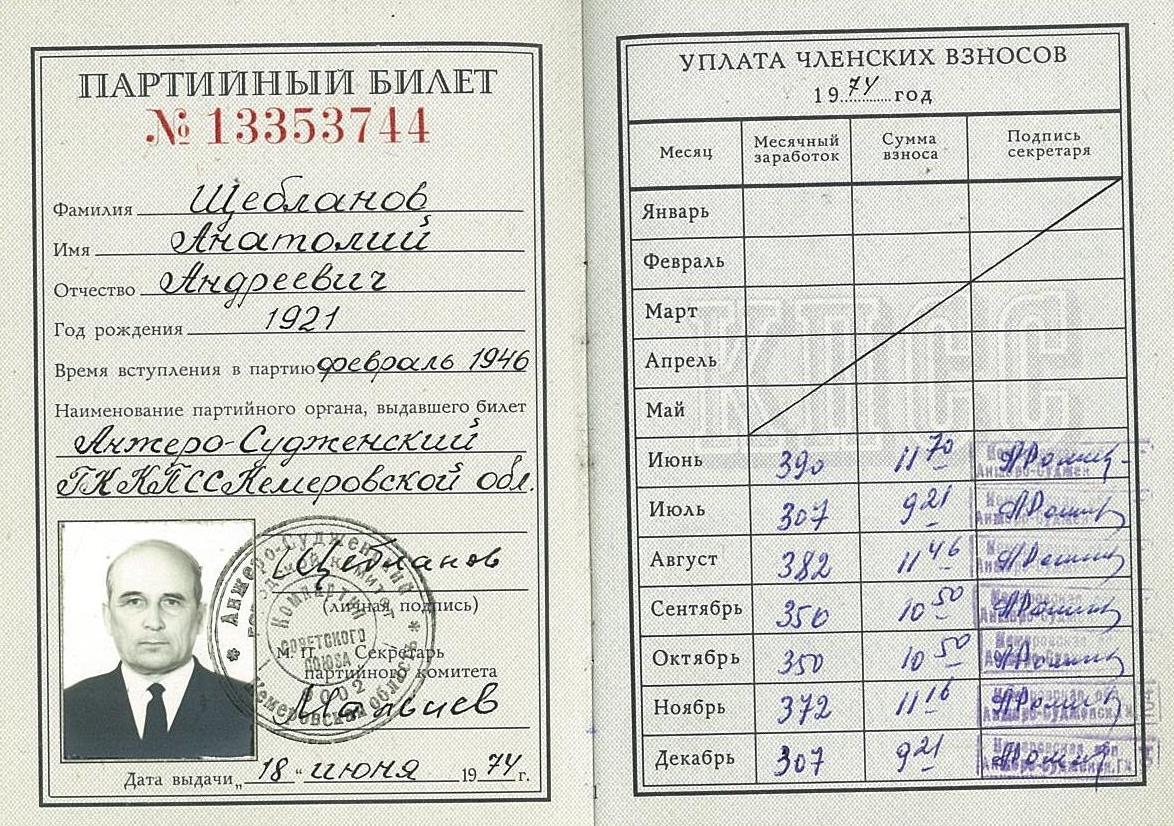 ПАРТИЙНЫЙ БИЛЕТ
№ 13353744
Фамилия Щебланов
Имя Анатолий
Отчество Андреевич
Год рождения 1921
Время вступления в партию февраль 1946
Наименование партийного органа, выдавшего билет
Анжеро-Судженский
ГК КПСС Кемеровской обл.
Щебланов
(личная подпись)
М. П. Секретарь
партийного комитета
Матвиев
Дата выдачи „18“ июня 1974 г.
Анжеро-Судженский городской комитет
Компартия Советского Союза
Кемеровская область
УПЛАТА ЧЛЕНСКИХ ВЗНОСОВ
1974 год
Месяц Месячный заработок Сумма взноса Подпись секретаря
Январь
Февраль
Март
Апрель
Май
Июнь 390 11 70
Июль 307 9 21
Август 382 11 46
Сентябрь 350 10 50
Октябрь 350 10 50
Ноябрь 372 11 16
Декабрь 307 9 21
КПСС